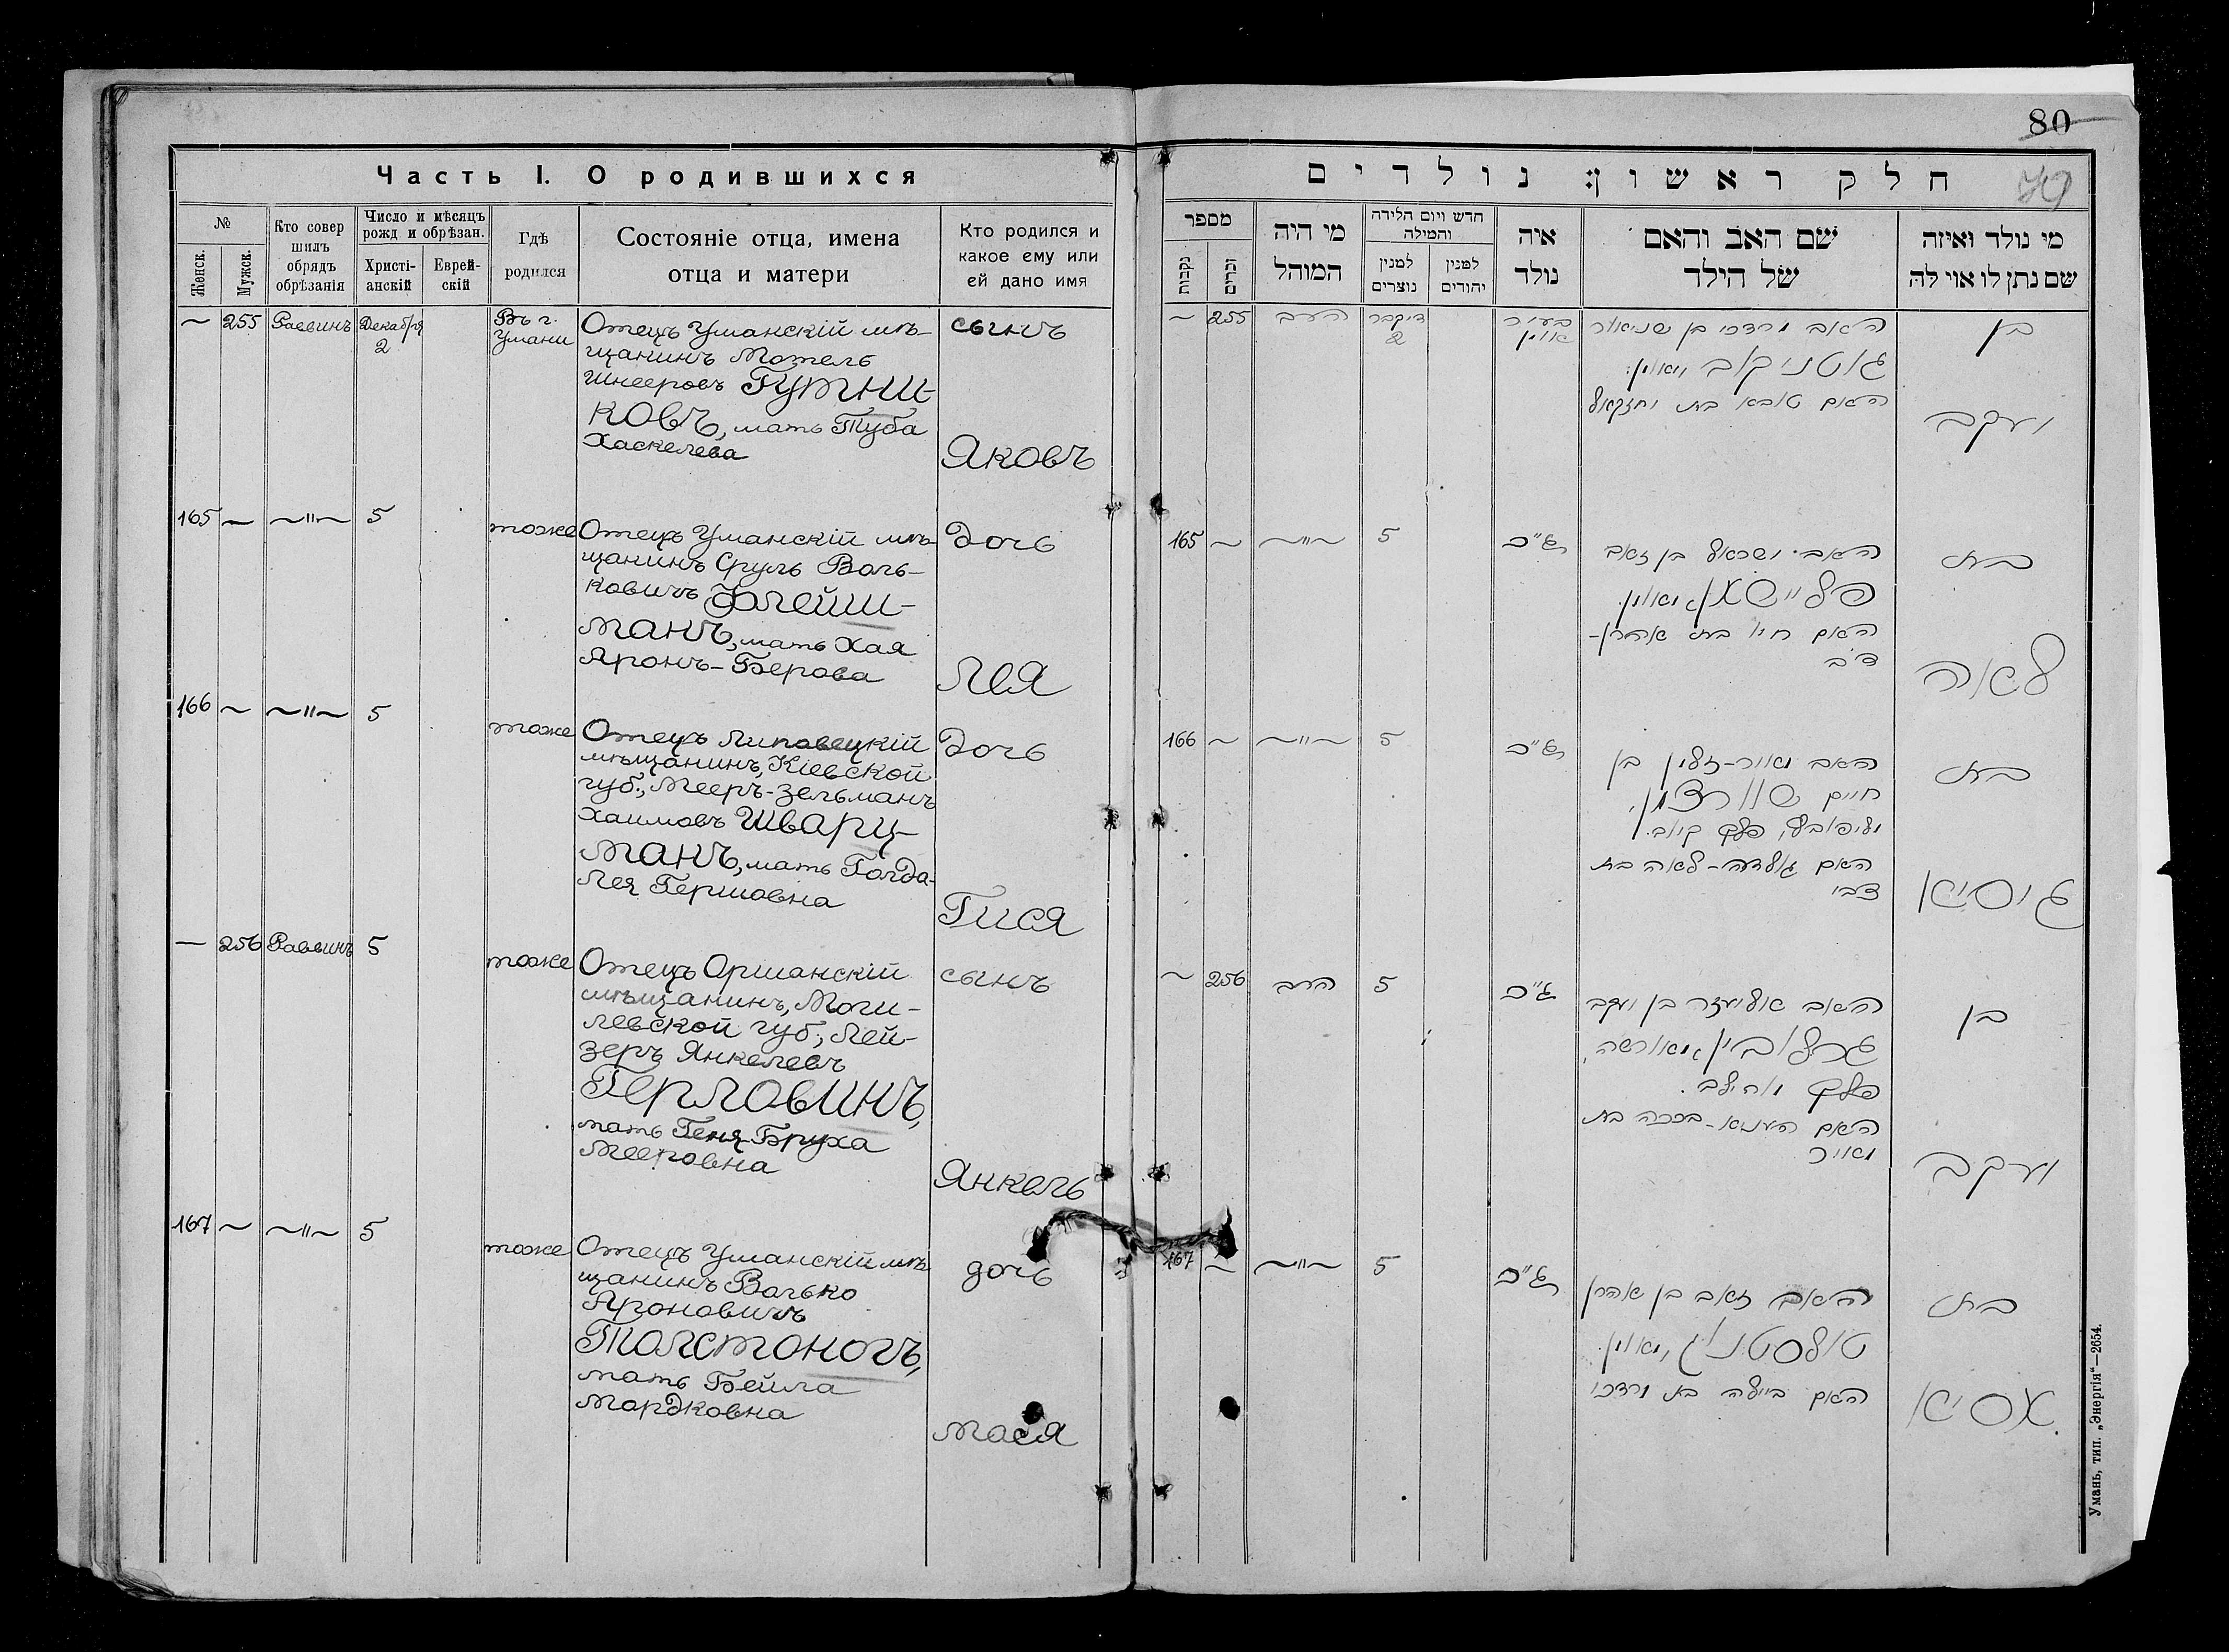 80
79
Часть I. О родившихся
№
Женск.
Мужск.
Кто совер
шилъ
обрядъ
обрѣзанія
Число и мѣсяцъ
рожд. и обрѣзан.
Христі-
анскій
Еврей-
скій
Гдѣ
родился
Состояніе отца, имена
отца и матери
Кто родился и
какое ему или
ей дано имя
— 255 Раввинъ Декабря
2
Въ г.
Умани
Отецъ Уманскій мѣ-
щанинъ Мотель
Шнееровъ Гутни-
ковъ, мать Туба
Хаскелева
сынъ
Яковъ
165 — —"— 5
тоже
Отецъ Уманскій мѣ-
щанинъ Сруль Воль-
ковичъ Флейш-
манъ, мать Хая
Аронъ-Берова
дочь
Лея
166 — —"— 5
тоже
Отецъ Липовецкій
мѣщанинъ, Кіевской
губ., Мееръ-Зельманъ
Хаимовъ Шварц-
манъ, мать Голда-
Лея Гершовна
дочь
Гися
— 256 Раввинъ 5
тоже
Отецъ Оршанскій
мѣщанинъ, Моги-
левской губ., Лей-
зеръ Янкелевъ
Герловинъ,
мать Геня-Бруха
Мееровна
сынъ
Янкель
167 — —"— 5
тоже
Отецъ Уманскій мѣ-
щанинъ Волько
Ароновичъ
Толстоногъ,
мать Бейла
Мордковна
дочь
Мася
חלק ראשון: נולדים
מספר
נקבות
זכרים
מי היה
המוהל
חדש ויום הלידה
והמילה
למנין
נוצרים
למנין
יהודים
איה
נולד
שם האב והאם
של הילד
מי נולד ואיזה
שם נתן לו או לה
— 255 הרב דיקבר
2
בעיר
אומן
האב מרדכי בן שניאור
גוטניקוב מאומן.
האם טובא בת יחזקאל
בן
יעקב
165 — —"— 5
ג"כ
האב ישראל בן זאב
פליישמן, מאומן.
האם חיי בת אהרן-
דב
בת
לאה
166 — —"— 5
ג"כ
האב מאיר-זלמן בן
חיים שוורצמן,
מליפובץ, פלך קיוב.
האם גולדה-לאה בת
צבי
בת
גיסיא
— 256 הרב 5
ג"כ
האב אליעזר בן יעקב
גרלובין, מאורשה,
פלך מהילב.
האם העניא-ברכה בת
מאיר
בן
יעקב
167 — —"— 5
ג"כ
האב זאב בן אהרן
טולסטנוג, מאומן.
האם ביילה בת מרדכי
בת
מסיא
Умань, тип. „Энергія“—2654.